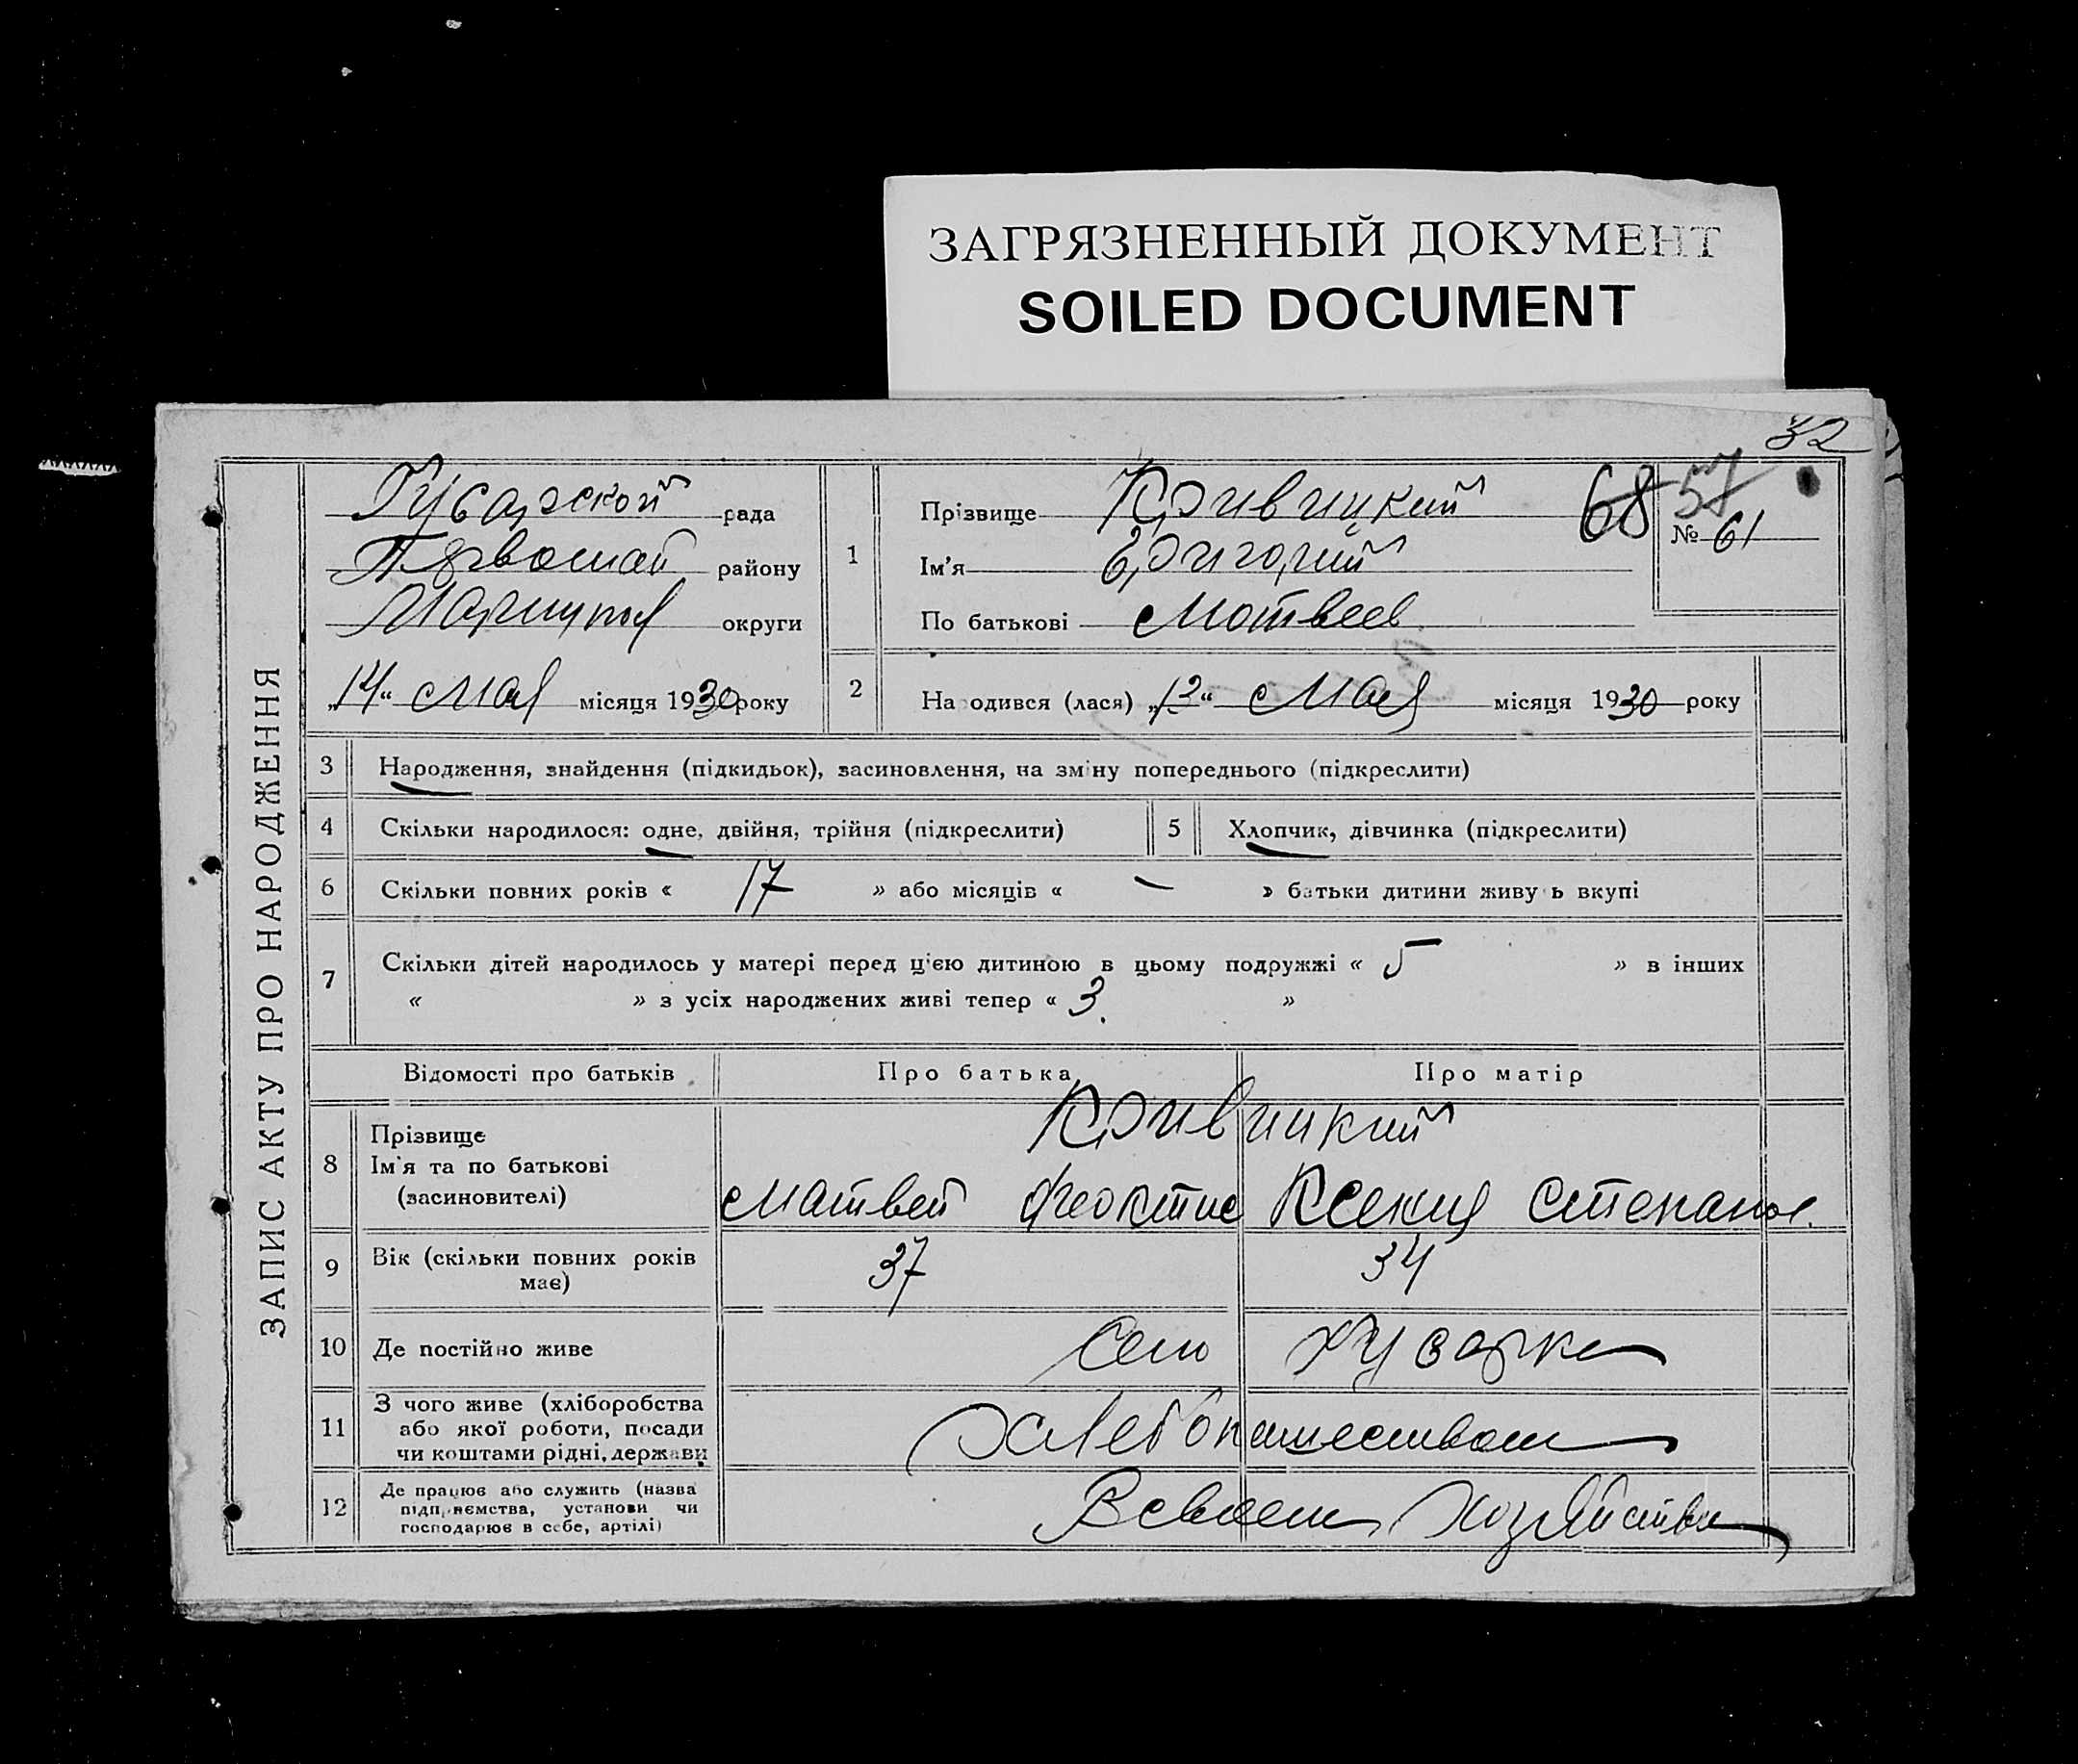 ЗАГРЯЗНЕННЫЙ ДОКУМЕНТ
SOILED DOCUMENT
32
ЗАПИС АКТУ ПРО НАРОДЖЕННЯ
Гусарской рада
Первомай району
Мариупол округи
„14“ Мая місяця 1930 року
1
Прізвище Кривицкий
Ім'я Григорий
По батькові Матвеев
68 57
№ 61
2
На одився (лася) „13“ Мая місяця 1930 року
3 Народження, знайдення (підкидьок), засиновлення, на зміну попереднього (підкреслити)
4 Скільки народилося: одне, двійня, трійня (підкреслити)
5 Хлопчик, дівчинка (підкреслити)
6 Скільки повних років « 17 » або місяців « — » батьки дитини живу ь вкупі
7 Скільки дітей народилось у матері перед цією дитиною в цьому подружжі « 5 » в інших
« » з усіх народжених живі тепер « 3. »
Відомості про батьків Про батька Про матір
8 Прізвище Кривицкий
Ім'я та по батькові
(засиновителі) Матвей Феоктис Ксения Степанов.
9 Вік (скільки повних років
має) 37 34
10 Де постійно живе Село
11 З чого живе (хліборобства
або якої роботи, посади
чи коштами рідні, держави Хлебопашеством
12 Де працює або служить (назва
підприємства, установи чи
господарює в себе, артілі) В своем хозяйстве